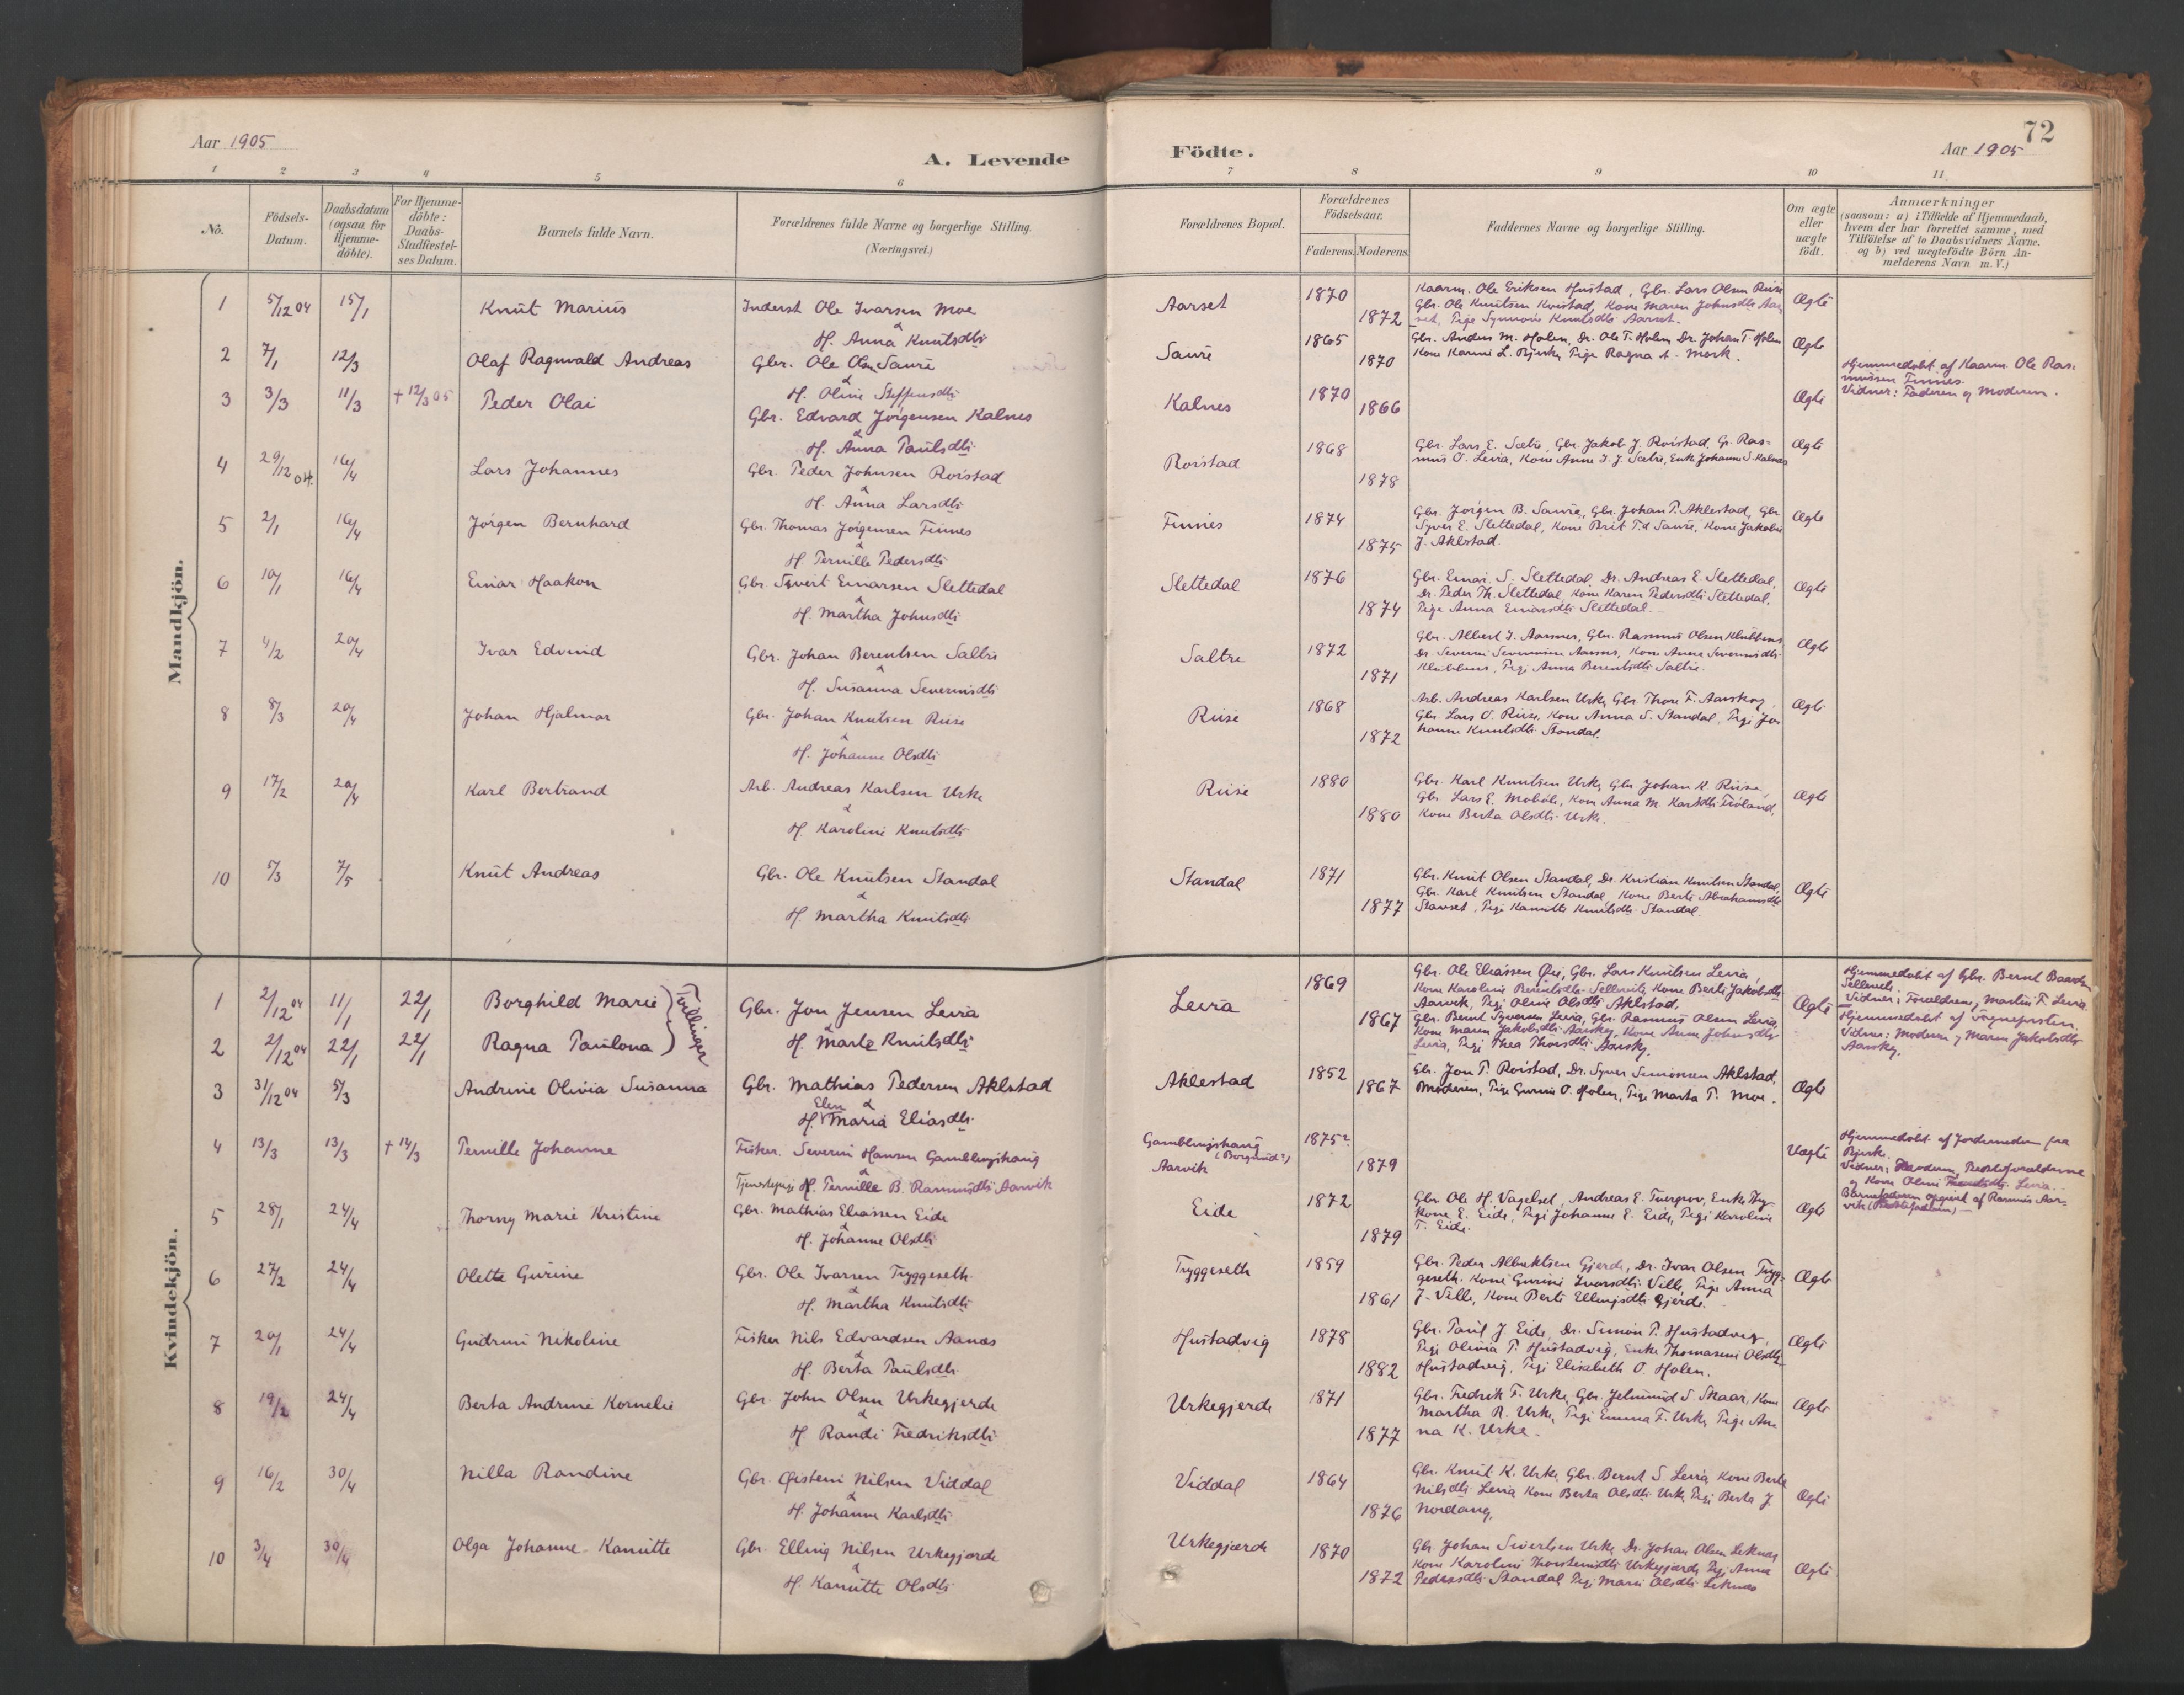 72
Aar 1905
A. Levende Födte.
Aar 1905
1 2 3 4 5 6 7 8 9 10 11
No.
Födsels-Datum.
Daabsdatum (ogsaa for Hjemme-döbte).
For Hjemme-döbte: Daabs-Stadfæstel-ses Datum.
Barnets fulde Navn.
Forældrenes fulde Navne og borgerlige Stilling. (Næringsvei.)
Forældrenes Bopæl.
Forældrenes Födselsaar.
Faderens. Moderens.
Faddernes Navne og borgerlige Stilling.
Om ægte eller uægte födt.
Anmærkninger (saasom: a) i Tilfælde af Hjemmedaab, hvem der har forrettet samme, med Tilföielse af to Daabsvidners Navne. og b) ved uægtefödte Börn An-melderens Navn m. V.)
Mandkjön.
1 5/12 04 15/1 Knut Marius Inderst Ole Ivarsen Moe & H. Anna Knutsdtr. Aarset 1870 1872 Kaarm. Ole Eriksen Hustad, Gbr. Lars Olsen Riise
Gbr. Ole Knutsen Kvistad, Kone Maren Johnsdtr. Aar-
set, Pige Synnøve Knutsdtr. Aarset. Ægte
2 7/1 12/3 Olaf Ragnvald Andreas Gbr. Ole Olsen Saure & H. Oline Steffensdtr. Saure 1865 1870 Gbr. Anders M. Holen, Dr. Ole T. Holen, Dr. Johan T. Holen
Kone Karen L. Bjerke, Pige Ragna A. Mork. Ægte
3 3/3 11/3 + 12/3 05 Peder Olai Gbr. Edvard Jørgensen Kalnes & H. Anna Paulsdtr. Kalnes 1870 1866 Ægte Hjemmedøbt af Kaarm. Ole Ras-
mussen Finnes.
Vidner: Faderen og Moderen.
4 29/12 04. 16/4 Lars Johannes Gbr. Peder Johnsen Roistad & H. Anna Larsdtr. Roistad 1868 1878 Gbr. Lars E. Sætre, Gbr. Jakob J. Roistad, G. Ras-
mus O. Leira, Kone Anne J. J. Sætre, Enke Johanne S. Kalnes Ægte
5 2/1 16/4 Jörgen Bernhard Gbr. Thomas Jørgensen Finnes & H. Pernille Pedersdtr. Finnes 1874 1875 Gbr. Jørgen B. Saure, Gbr. Johan P. Aklestad, Gbr.
Syver E. Slettedal, Kone Brit T.d. Saure, Kone Jakobe
J. Aklestad. Ægte
6 10/1 16/4 Einar Haakon Gbr. Syvert Einarsen Slettedal & H. Martha Johnsdtr. Slettedal 1876 1874 Gbr. Einar S. Slettedal, Dr. Andreas E. Slettedal,
Dr. Peder Th. Slettedal, Kone Karen Pedersdtr. Slettedal,
Pige Anna Einarsdtr. Slettedal. Ægte
7 4/2 20/4 Ivar Edvind Gbr. Johan Berentsen Saltre & H. Susanna Severinsdtr. Saltre 1872 1871 Gbr. Albert I. Aarsnes, Gbr. Rasmus Olsen Klubbenes
Dr. Severin Severinsen Aarsnes, Kone Anna Severinsdtr.
Klubbenes, Pige Anna Berentsdtr. Saltre. Ægte
8 8/3 20/4 Johan Hjalmar Gbr. Johan Knutsen Riise & H. Johanne Olsdtr. Riise 1868 1872 Arb. Andreas Karlsen Urke, Gbr. Thore F. Aarskog,
Gbr. Lars O. Riise, Kone Anna S. Standal, Pige Jo-
hanne Knutsdtr. Standal. Ægte
9 17/2 20/4 Karl Bertrand Arb. Andreas Karlsen Urke & H. Karoline Knutsdtr. Riise 1880 1880 Gbr. Karl Knutsen Urke, Gbr. Johan K. Riise,
Gbr. Lars E. Mobøle, Kone Anna M. Karlsdtr. Frøland,
Kone Berta Olsdtr. Urke. Ægte
10 5/3 7/5 Knut Andreas Gbr. Ole Knutsen Standal & H. Martha Knutsdtr. Standal 1871 1877 Gbr. Knut Olsen Standal, Dr. Kristian Knutsen Standal,
Gbr. Karl Knutsen Standal, Kone Berte Abrahamsdtr.
Stavset, Pige Kanutte Knutsdtr. Standal. Ægte
Kvindekjön.
1 2/12 04 11/1 22/1 Borghild Marie
2 2/12 04 22/1 22/1 Ragna Paulona
Tvillinger
Gbr. Jon Jensen Leira & H. Marte Knutsdtr. Leira 1869 1867 Gbr. Ole Eliassen Øie, Gbr. Lars Knutsen Leira,
Kone Karoline Berntsdtr. Sellereite, Kone Berte Jakobsdtr.
Aarvik, Pige Oline Olsdtr. Aklestad.
Gbr. Bernt Syversen Leira, Gbr. Rasmus Olsen Leira,
Kone Maren Jakobsdtr. Aarskog, Kone Anne Johnsdtr.
Leira, Pige Thea Thoresdtr. Aarskog. Ægte Hjemmedøbt af Gbr. Bernt Baardsen
Sellereite.
Vidner: Forældrene, Martin F. Leira.
Hjemmedøbt af Sognepresten.
Vidner: Moderen og Maren Jakobsdtr.
Aarskog.
3 31/12 04 5/3 Andrine Olivia Susanna Gbr. Mathias Pedersen Aklestad & H. Elen Maria Eliasdtr. Aklestad 1852 1867 Gbr. Jon P. Roistad, Dr. Syver Simonsen Aklestad,
Moderen, Pige Gurine O. Holen, Pige Marta P. Moe. Ægte
4 13/3 13/3 + 14/3 Pernille Johanne Fisker. Severin Hansen Gamblingshaug & Tjenestepige Pernille B. Rasmusdtr. Aarvik Gamblingshaug (Borgund?) Aarvik 1875? 1879 Uægte Hjemmedøbt af Jordemoderen fra
Bjerke.
Vidner: Moderen, Bedsteforældrene
og Kone Oline Leira.
Barnefaderen opgivet af Rasmus Aar-
vik (Bedstefaderen)
5 28/1 24/4 Thorny Marie Kristine Gbr. Mathias Eliassen Eide & H. Johanne Olsdtr. Eide 1872 1879 Gbr. Ole H. Vagelset, Andreas E. Tuergrov, Enke
Kone E. Eide, Pige Johanne E. Eide, Pige Karoline
T. Eide. Ægte
6 27/2 24/4 Olette Gurine Gbr. Ole Ivarsen Tryggeseth & H. Martha Knutsdtr. Tryggeseth 1859 1861 Gbr. Peder Albriktsen Gjerde, Dr. Ivar Olsen Tryg-
geseth. Kone Gurine Ivarsdtr. Velle, Pige Anna
J. Velle, Kone Berte Ellingsdtr. Gjerde. Ægte
7 20/1 24/4 Gudrun Nikoline Fisker Nils Edvardsen Aanes & H. Berta Paulsdtr. Hustadvig 1878 1882 Gbr. Paul J. Eide, Dr. Simon P. Hustadvig,
Pige Olivia P. Hustadvig, Enke Thomasine Olsdtr.
Hustadvig, Pige Elisabeth O. Holen. Ægte
8 19/2 24/4 Berta Andrine Kornelie Gbr. John Olsen Urkegjerde & H. Randi Fredriksdtr. Urkegjerde 1871 1877 Gbr. Fredrik F. Urke, Gbr. Jelmund S. Skaar, Kone
Martha R. Urke, Pige Emma F. Urke, Pige An-
na K. Urke. Ægte
9 16/2 30/4 Nilla Randine Gbr. Øistein Nilsen Viddal & H. Johanne Karlsdtr. Viddal 1864 1876 Gbr. Knut K. Urke, Gbr. Bernt S. Leira, Kone Berte
Nilsdtr. Leira, Kone Berta Olsdtr. Urke, Pige Berta J.
Nordang. Ægte
10 3/4 30/4 Olga Johanne Kanutte Gbr. Elling Nilsen Urkegjerde & H. Kanutte Olsdtr. Urkegjerde 1870 1872 Gbr. Johan Sivertsen Urke, Dr. Johan Olsen Leknes,
Kone Karoline Thorsteinsdtr. Urkegjerde, Pige Anna
Pedersdtr. Standal, Pige Marie Olsdtr. Leknes Ægte